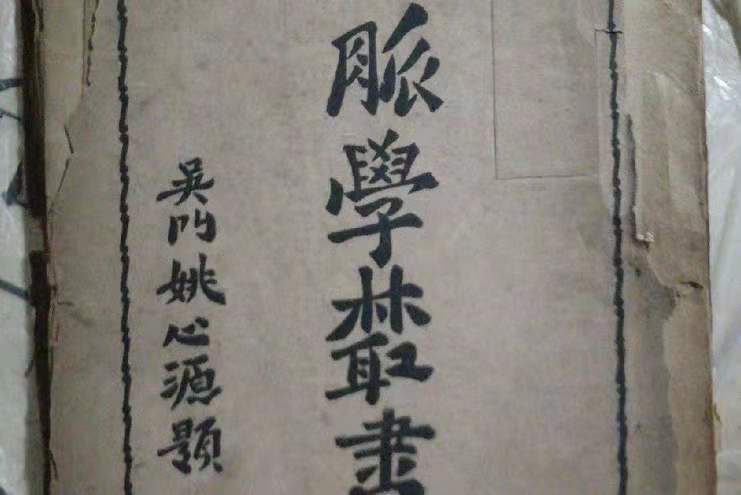 脈學樷書
吳門姚心源題